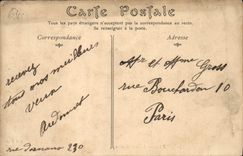 Carte Postale
Tous les pays étrangers n'acceptent pas la correspondance au recto.
Se renseigner à la poste.
Correspondance
Adresse
recevez
tous nos meilleurs
vœux
rue 230
Mr et Mme Gross
rue Bouchardon 10
Paris